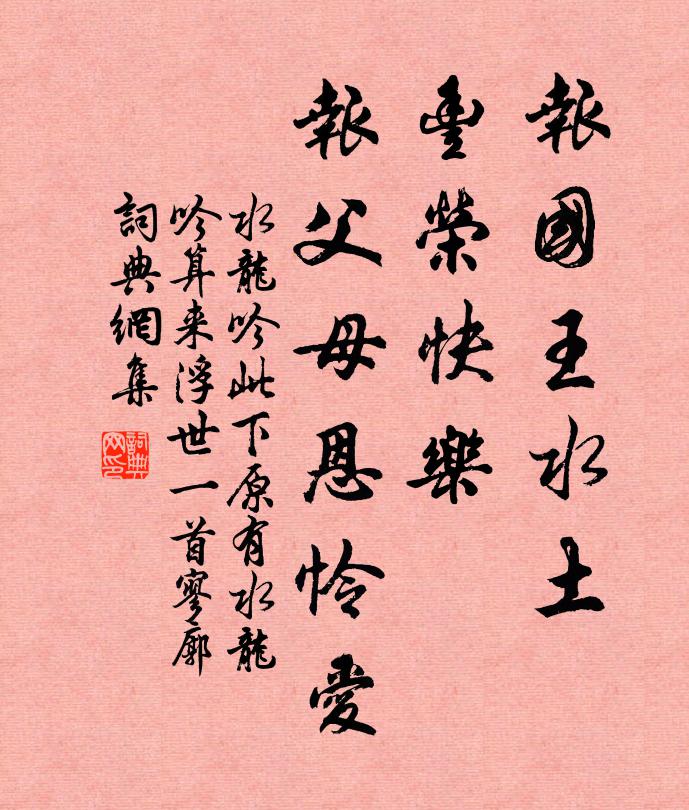 報國王水土
豊榮快樂
報父母恩怜愛
水龍吟此下原有水龍
吟算来浮世一首寥廓
詞典網集
詞典网印